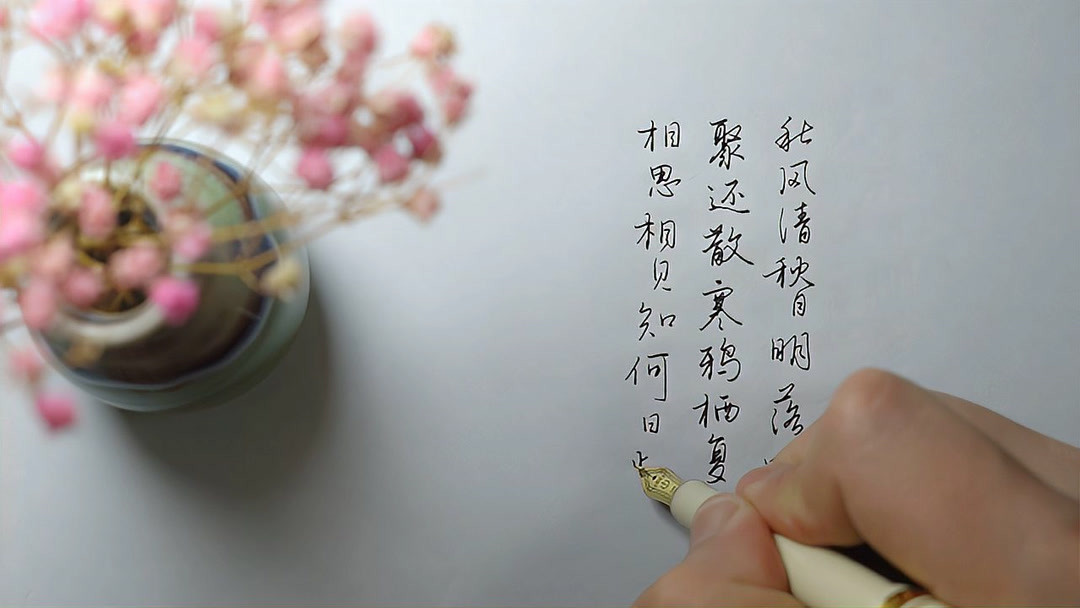 秋风清秋月明落
聚还散寒鸦栖复
相思相见知何日